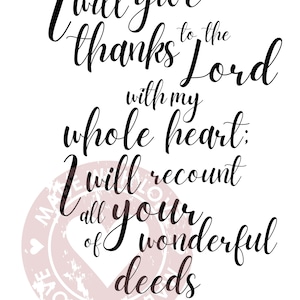 I will give
thanks to the
Lord
with my
whole heart;
I will recount
all your
of wonderful
deeds
MADE WITH LOVE
LOVE